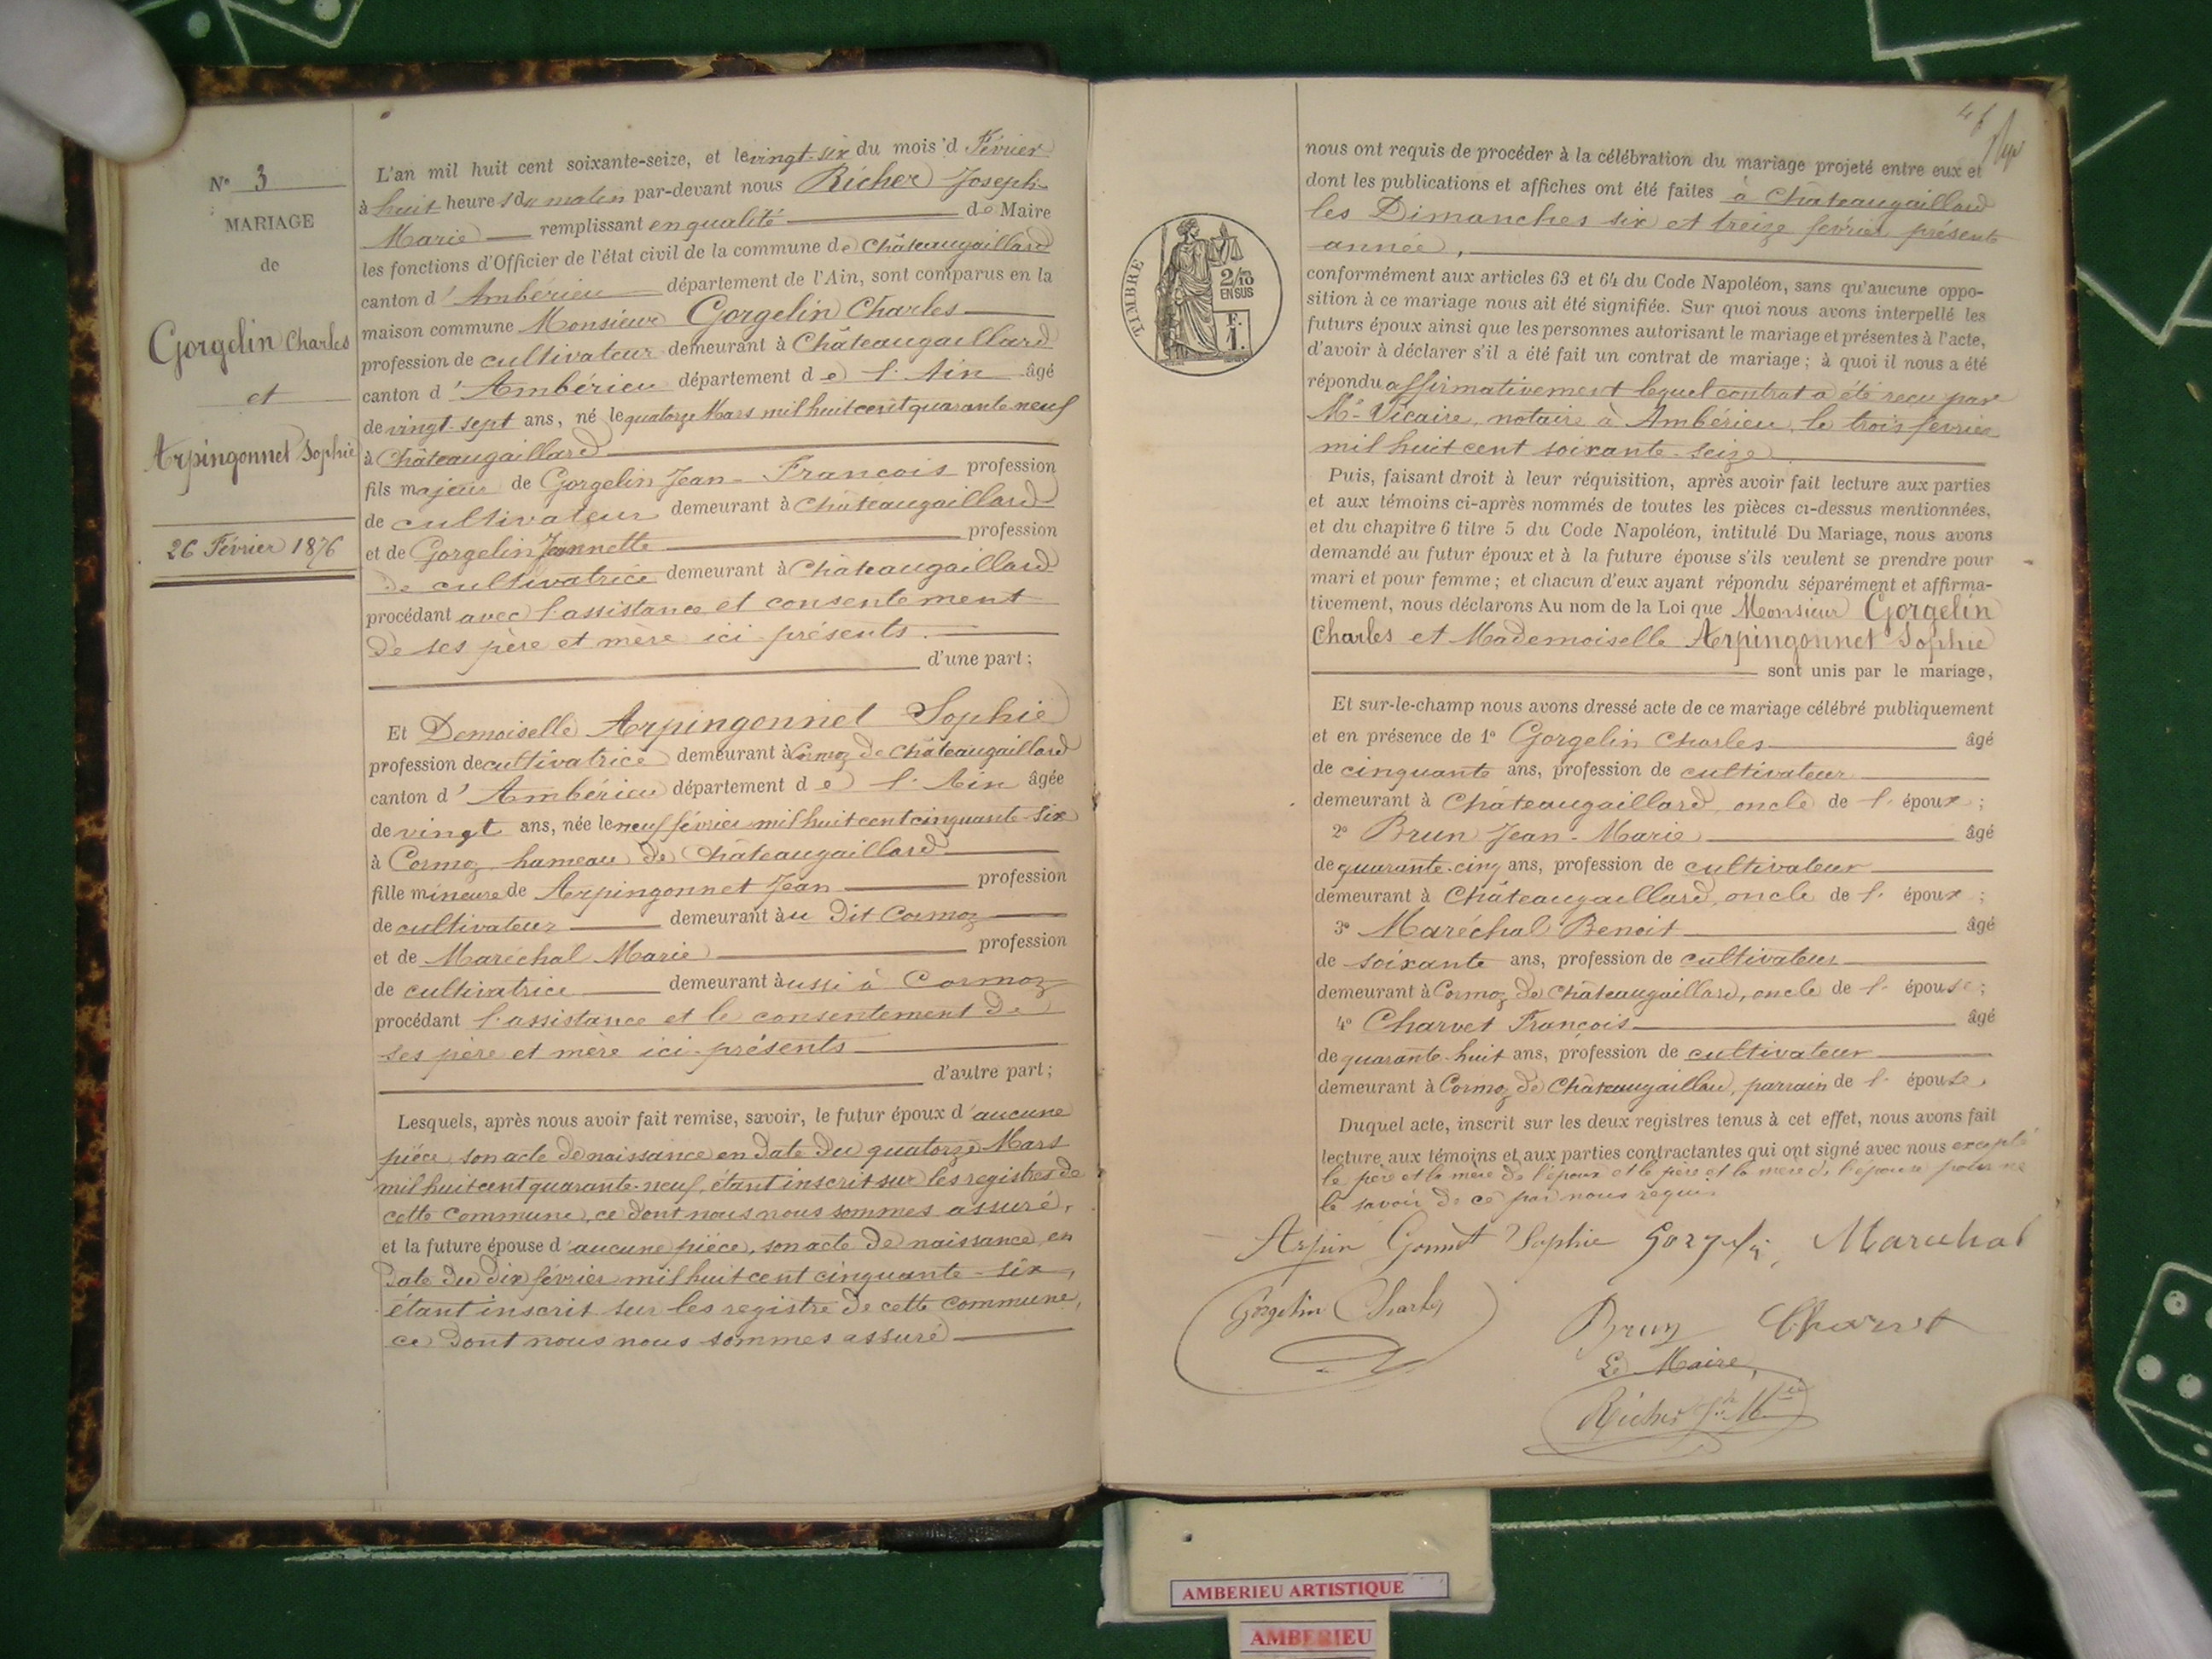 N° 3
MARIAGE
de
Gorgelin Charles
et
Arpingonnet Sophie
26 Février 1876
L'an mil huit cent soixante-seize, et le vingt-six du mois d Février
à huit heures du matin par-devant nous Richer Joseph-
Marie remplissant en qualité de Maire
les fonctions d'Officier de l'état civil de la commune de Châteaugaillard
canton d'Ambérieu département de l'Ain, sont comparus en la
maison commune Monsieur Gorgelin Charles
profession de cultivateur demeurant à Châteaugaillard
canton d'Ambérieu département de l'Ain âgé
de vingt-sept ans, né le quatorze Mars mil huit cent quarante neuf
à Châteaugaillard
fils majeur de Gorgelin Jean-François profession
de cultivateur demeurant à Châteaugaillard
et de Gorgelin Jeannette profession
de cultivatrice demeurant à Châteaugaillard
procédant avec l'assistance et consentement
de ses père et mère ici présents.
d'une part;
Et Demoiselle Arpingonnet Sophie
profession de cultivatrice demeurant à Cormoz de Châteaugaillard
canton d'Ambérieu département de l'Ain âgée
de vingt ans, née le neuf février mil huit cent cinquante-six
à Cormoz hameau de Châteaugaillard
fille mineure de Arpingonnet Jean profession
de cultivateur demeurant au dit Cormoz
et de Maréchal Marie profession
de cultivatrice demeurant aussi à Cormoz
procédant l'assistance et le consentement de
ses père et mère ici présents
d'autre part;
Lesquels, après nous avoir fait remise, savoir, le futur époux d'aucune
pièce, son acte de naissance en date du quatorze Mars
mil huit cent quarante-neuf, étant inscrit sur les registres de
cette commune, ce dont nous nous sommes assuré,
et la future épouse d'aucune pièce, son acte de naissance en
date du dix février mil huit cent cinquante-six,
étant inscrit sur les registre de cette commune,
ce dont nous nous sommes assuré
TIMBRE
2/10
EN SUS
F.
1.
nous ont requis de procéder à la célébration du mariage projeté entre eux et
dont les publications et affiches ont été faites à Châteaugaillard
les Dimanches six et treize février présente
année,
conformément aux articles 63 et 64 du Code Napoléon, sans qu'aucune oppo-
sition à ce mariage nous ait été signifiée. Sur quoi nous avons interpellé les
futurs époux ainsi que les personnes autorisant le mariage et présentes à l'acte,
d'avoir à déclarer s'il a été fait un contrat de mariage; à quoi il nous a été
répondu affirmativement lequel contrat a été reçu par
Me Vicaire, notaire à Ambérieu, le trois février
mil huit cent soixante-seize
Puis, faisant droit à leur réquisition, après avoir fait lecture aux parties
et aux témoins ci-après nommés de toutes les pièces ci-dessus mentionnées,
et du chapitre 6 titre 5 du Code Napoléon, intitulé Du Mariage, nous avons
demandé au futur époux et à la future épouse s'ils veulent se prendre pour
mari et pour femme; et chacun d'eux ayant répondu séparément et affirma-
tivement, nous déclarons Au nom de la Loi que Monsieur Gorgelin
Charles et Mademoiselle Arpingonnet Sophie
sont unis par le mariage,
Et sur-le-champ nous avons dressé acte de ce mariage célébré publiquement
et en présence de 1° Gorgelin Charles âgé
de cinquante ans, profession de cultivateur
demeurant à Châteaugaillard, oncle de l'époux;
2° Brun Jean-Marie âgé
de quarante-cinq ans, profession de cultivateur
demeurant à Châteaugaillard, oncle de l'époux;
3° Maréchal Benoit âgé
de soixante ans, profession de cultivateur
demeurant à Cormoz de Châteaugaillard, oncle de l'épouse;
4° Charvet François âgé
de quarante-huit ans, profession de cultivateur
demeurant à Cormoz de Châteaugaillard, parrain de l'épouse.
Duquel acte, inscrit sur les deux registres tenus à cet effet, nous avons fait
lecture aux témoins et aux parties contractantes qui ont signé avec nous excepté
le père et la mère de l'époux et le père et la mère de l'épouse pour ne
le savoir de ce par nous requis
Arpin Gonnet Sophie Gorgelin Marechal
Gorgelin Charles
Brun Charvet
Le Maire,
Richer Jh Mie
AMBERIEU ARTISTIQUE
AMBERIEU